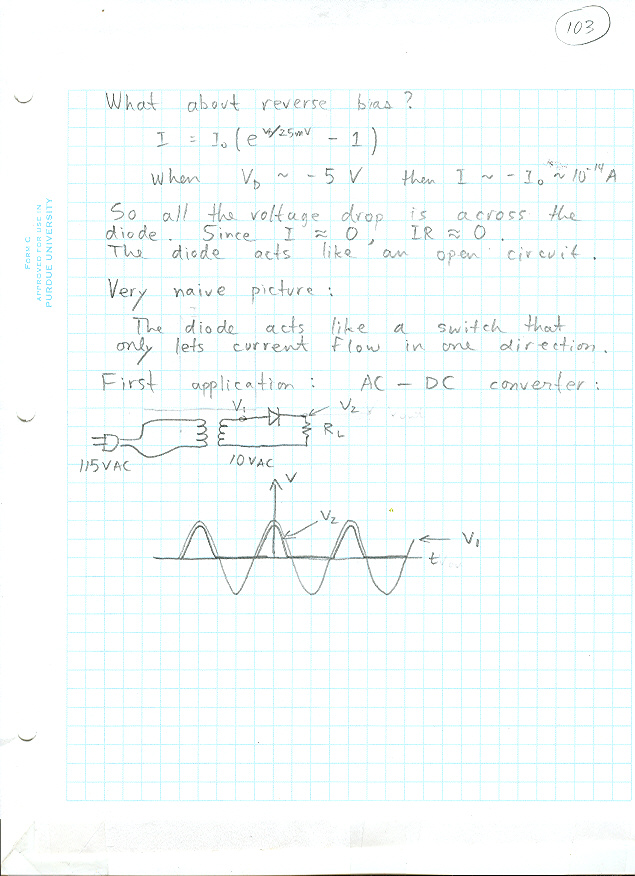 103
What about reverse bias?
I = I₀ (e^(V_D/25mV) - 1)
When V_D ~ -5 V then I ~ -I₀ ≈ 10⁻¹⁴ A
So all the voltage drop is across the
diode. Since I ≈ 0, IR ≈ 0.
The diode acts like an open circuit.
Very naive picture:
The diode acts like a switch that
only lets current flow in one direction.
First application: AC - DC converter:
V₁ V₂
R_L
115 VAC 10 VAC
V
V₂
V₁
t
FORM C
APPROVED FOR USE IN
PURDUE UNIVERSITY